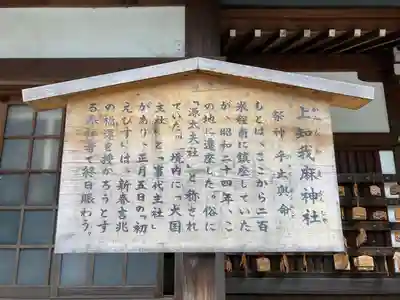 上知我麻神社
かみちかまじんじゃ
祭神 乎止與命
もとは、ここから二百
米程南に鎮座していた
が、昭和二十四年、こ
の地に遷座した。俗に
「源太夫社」と称され
ていた。境内に「大国
主社」と「事代主社」
があり、正月五日の「初
えびす」は、新春吉兆
の福運を授かろうとす
る参社等で終日賑わう。